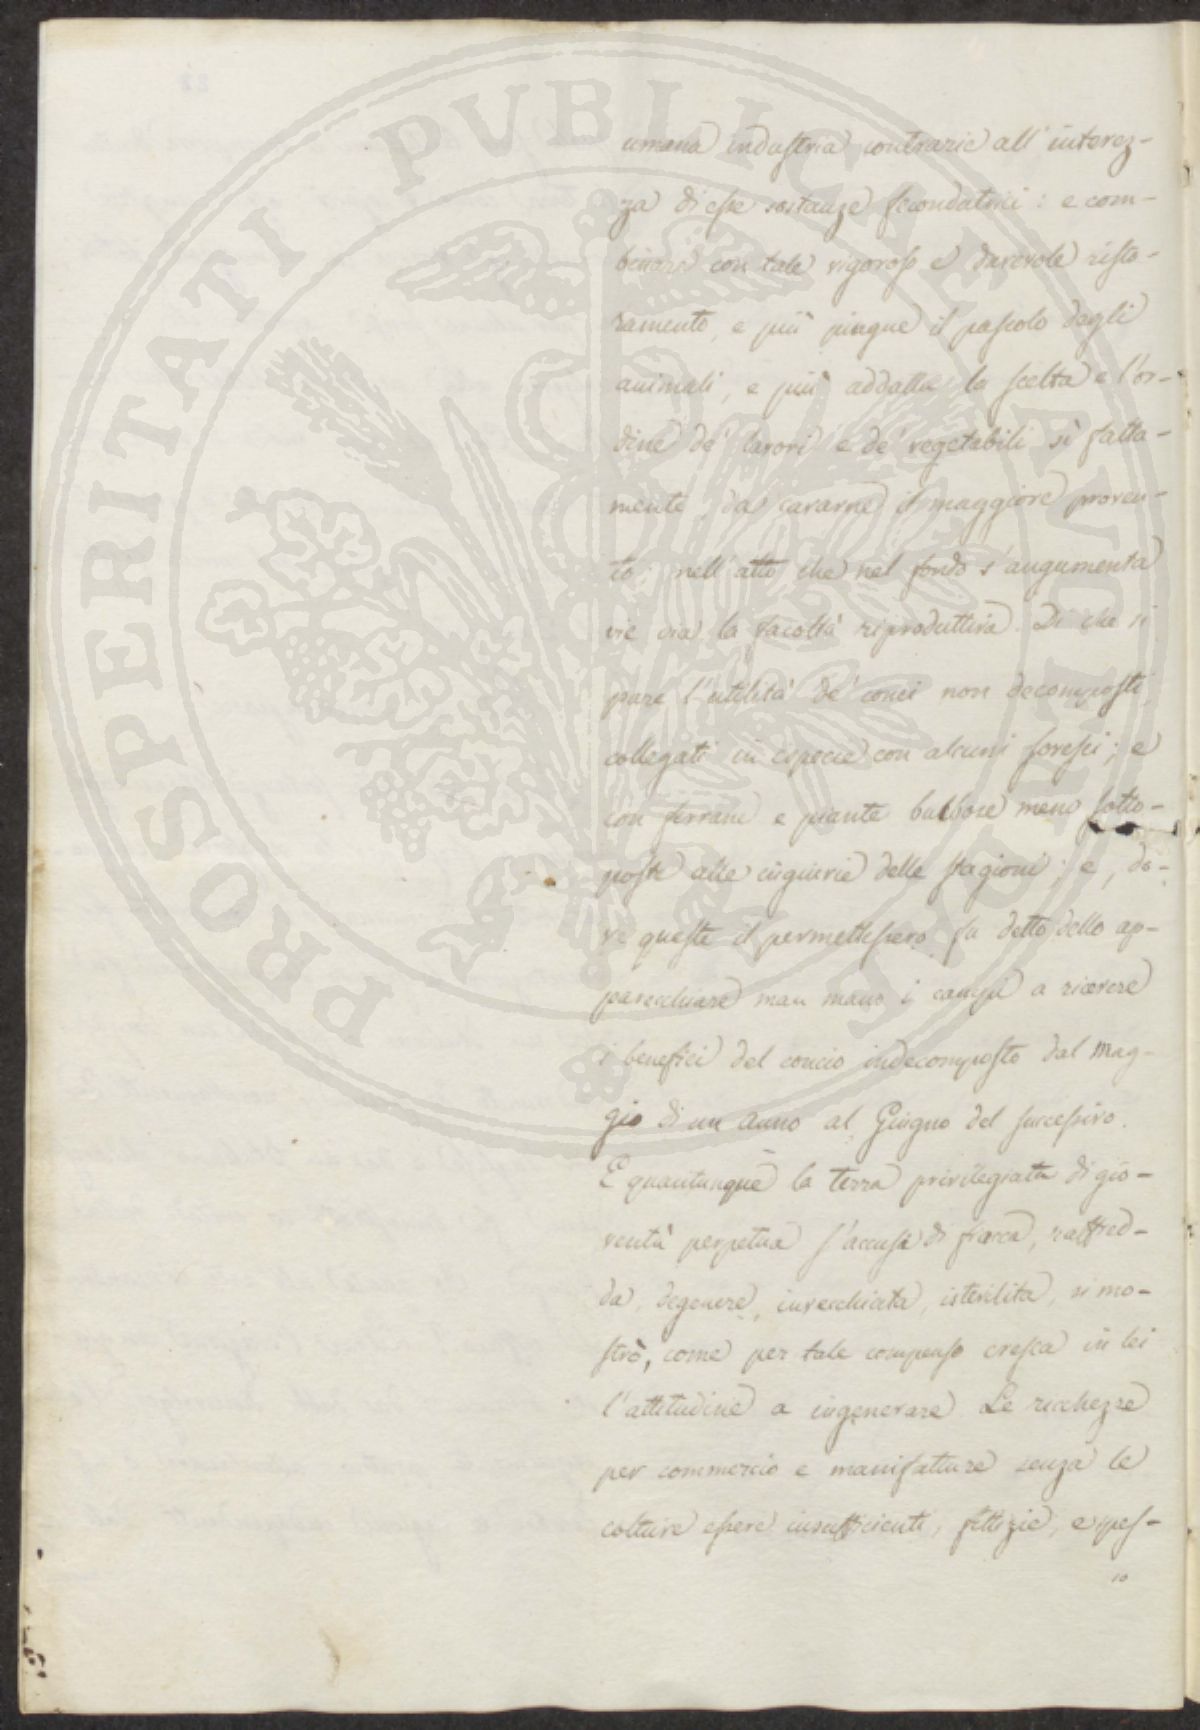 PROSPERITATI PUBLICAE AUGENDAE
umana industria contrarie all' interez-
za di esse sostanze fecondatrici : e com-
binare con tale vigoroso e durevole risto-
ramento, e più pingue il pascolo degli
animali, e più addatta la scelta e l'or-
dine de' lavori e de' vegetabili sì fatta-
mente, da cavarne il maggiore proven-
to; nell' atto che nel fondo s' augumenta
vie via la facoltà riproduttiva. Di che si
pare l'utilità de' conci non decomposti,
collegati in ispecie con alcuni sovesci; e
con ferrane e piante bulbose meno sotto-
poste alle ingiurie delle stagioni; e, do-
ve queste il permettessero fu detto dello ap-
parecchiare man mano i campi a ricevere
i benefici del concio indecomposto dal Mag-
gio di un anno al Giugno del successivo.
E quantunque la terra privilegiata di gio-
ventù perpetua s'accusi di fiacca, raffred-
da, degenere, invecchiata, isterilita, si mo-
strò, come per tale compenso cresca in lei
l'attitudine a ingenerare Le ricchezze
per commercio e manifatture senza le
colture essere insufficienti, fittizie, e spes-
so